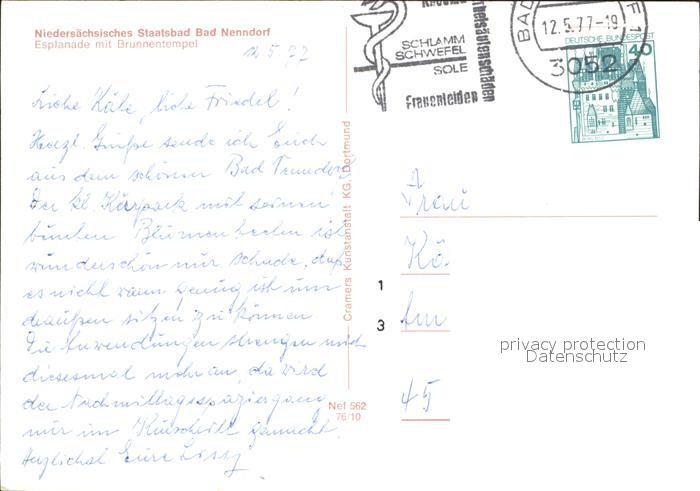 Niedersächsisches Staatsbad Bad Nenndorf
Esplanade mit Brunnentempel
12.5.77
Liebe Käte, liebe Friedel!
Herzl. Grüße sende ich Euch
aus dem schönen Bad Nenndorf
Der kl. Kurpark mit seinen
bunten Blumenbeeten ist
wunderschön nur schade, daß
es nicht warm genug ist um
draußen sitzen zu können.
Die Anwendungen strengen mich
diesesmal mehr an, da wird
der Nachmittagsspaziergang
nur im Kurschritt gemacht.
Herzlichst Eure Lissy
Cramers Kunstanstalt KG, Dortmund
Nef 562
76/10
SCHLAMM
SCHWEFEL
SOLE
Frauenleiden
BAD
12.5.77-19
3052
DEUTSCHE BUNDESPOST
40
Frau
Kä
1
Am
3
45
privacy protection
Datenschutz